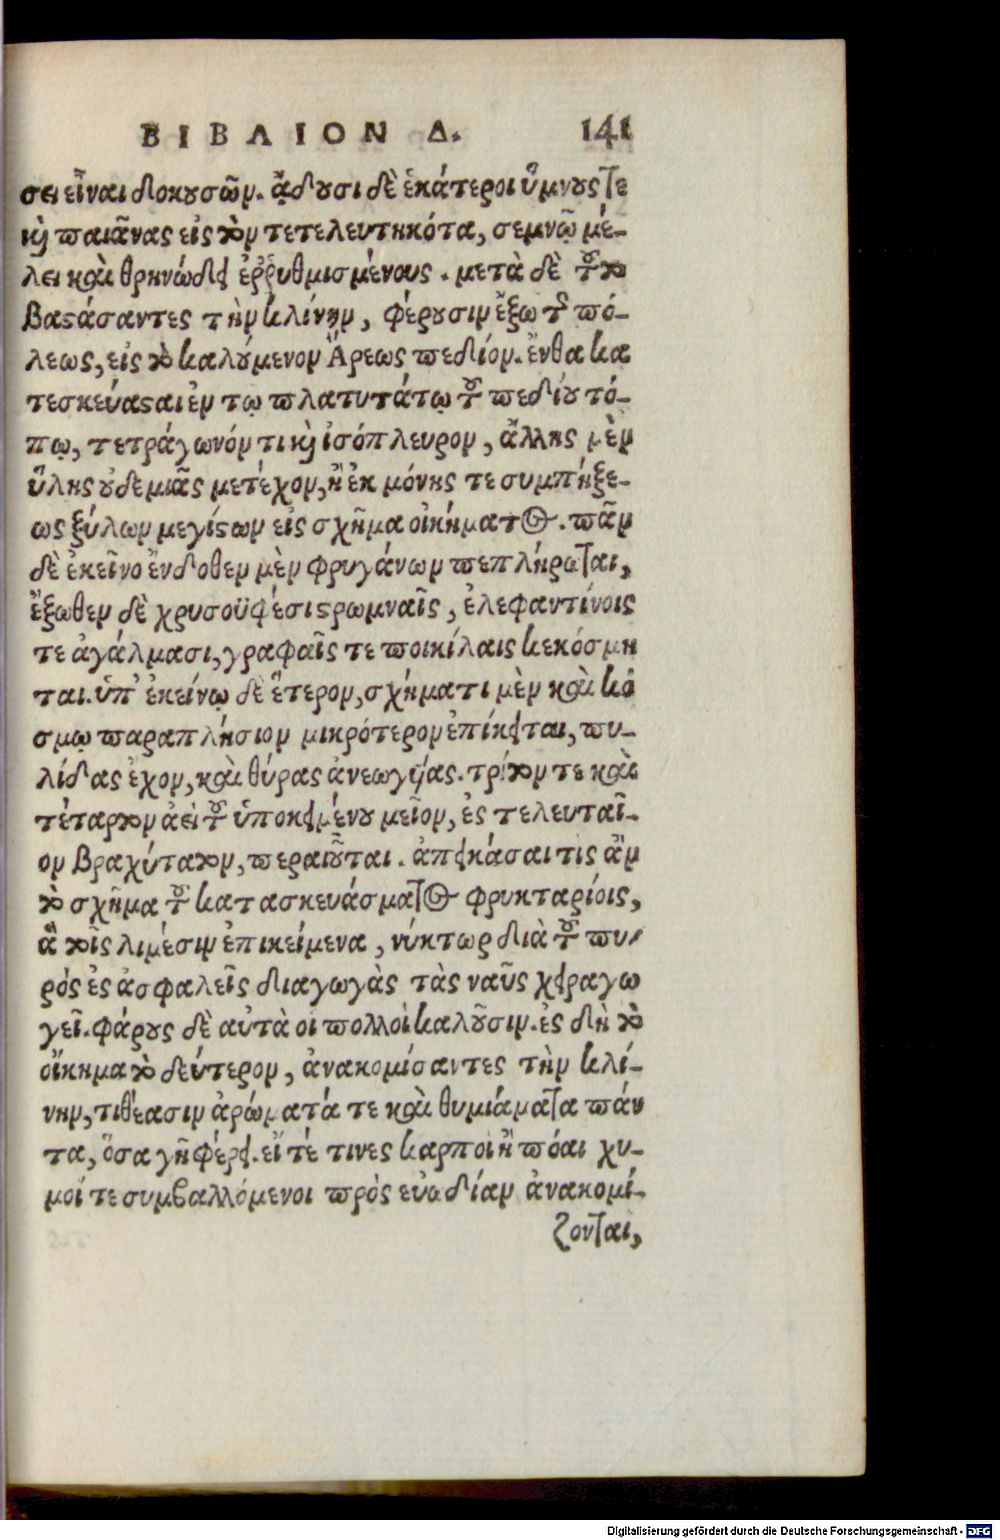 ΒΙΒΛΙΟΝ Δ. 141
σει εἶναι δοκουσῶν. ᾄδουσι δὲ ἑκάτεροι ὕμνους τε
καὶ παιᾶνας εἰς τὸν τετελευτηκότα, σεμνῷ μέ-
λει καὶ θρηνώδει ἐῤῥυθμισμένους. μετὰ δὲ τοῦτο
βαστάσαντες τὴν κλίνην, φέρουσιν ἔξω τῆς πό-
λεως, εἰς τὸ καλούμενον Ἄρεως πεδίον. ἔνθα κα
τεσκεύασται ἐν τῳ πλατυτάτῳ τοῦ πεδίου τό-
πῳ, τετράγωνόν τι καὶ ἰσόπλευρον, ἄλλης μὲν
ὕλης οὐδεμιᾶς μετέχον, ἢ ἐκ μόνης τε συμπήξε-
ως ξύλων μεγίστων εἰς σχῆμα οἰκήματος. πᾶν
δὲ ἐκεῖνο ἔνδοθεν μὲν φρυγάνων πεπλήρωται,
ἔξωθεν δὲ χρυσοϋφέσι στρωμναῖς, ἐλεφαντίνοις
τε ἀγάλμασι, γραφαῖς τε ποικίλαις κεκόσμη
ται. ὑπ' ἐκείνῳ δὲ ἕτερον, σχήματι μὲν καὶ κό
σμῳ παραπλήσιον μικρότερον ἐπίκειται, πυ-
λίδας ἔχον, καὶ θύρας ἀνεωγυίας. τρίτον τε καὶ
τέταρτον ἀεὶ τοῦ ὑποκειμένου μεῖον, ἐς τελευταῖ-
ον βραχύτατον, περαιοῦται. ἀπεικάσαι τις ἂν
τὸ σχῆμα τοῦ κατασκευάσματος φρυκταρίοις,
ἃ τοῖς λιμέσιν ἐπικείμενα, νύκτωρ διὰ τοῦ πυ-
ρός ἐς ἀσφαλεῖς διαγωγὰς τὰς ναῦς χειραγω
γεῖ. φάρους δὲ αὐτὰ οἱ πολλοὶ καλοῦσιν. ἐς δὴ τὸ
οἴκημα τὸ δεύτερον, ἀνακομίσαντες τὴν κλί-
νην, τιθέασιν ἀρώματά τε καὶ θυμιάματα πάν
τα, ὅσα γῆ φέρει. εἴ τέ τινες καρποὶ ἢ πόαι χυ-
μοί τε συμβαλλόμενοι πρὸς εὐωδίαν ἀνακομί-
ζονται,
Digitalisierung gefördert durch die Deutsche Forschungsgemeinschaft - DFG